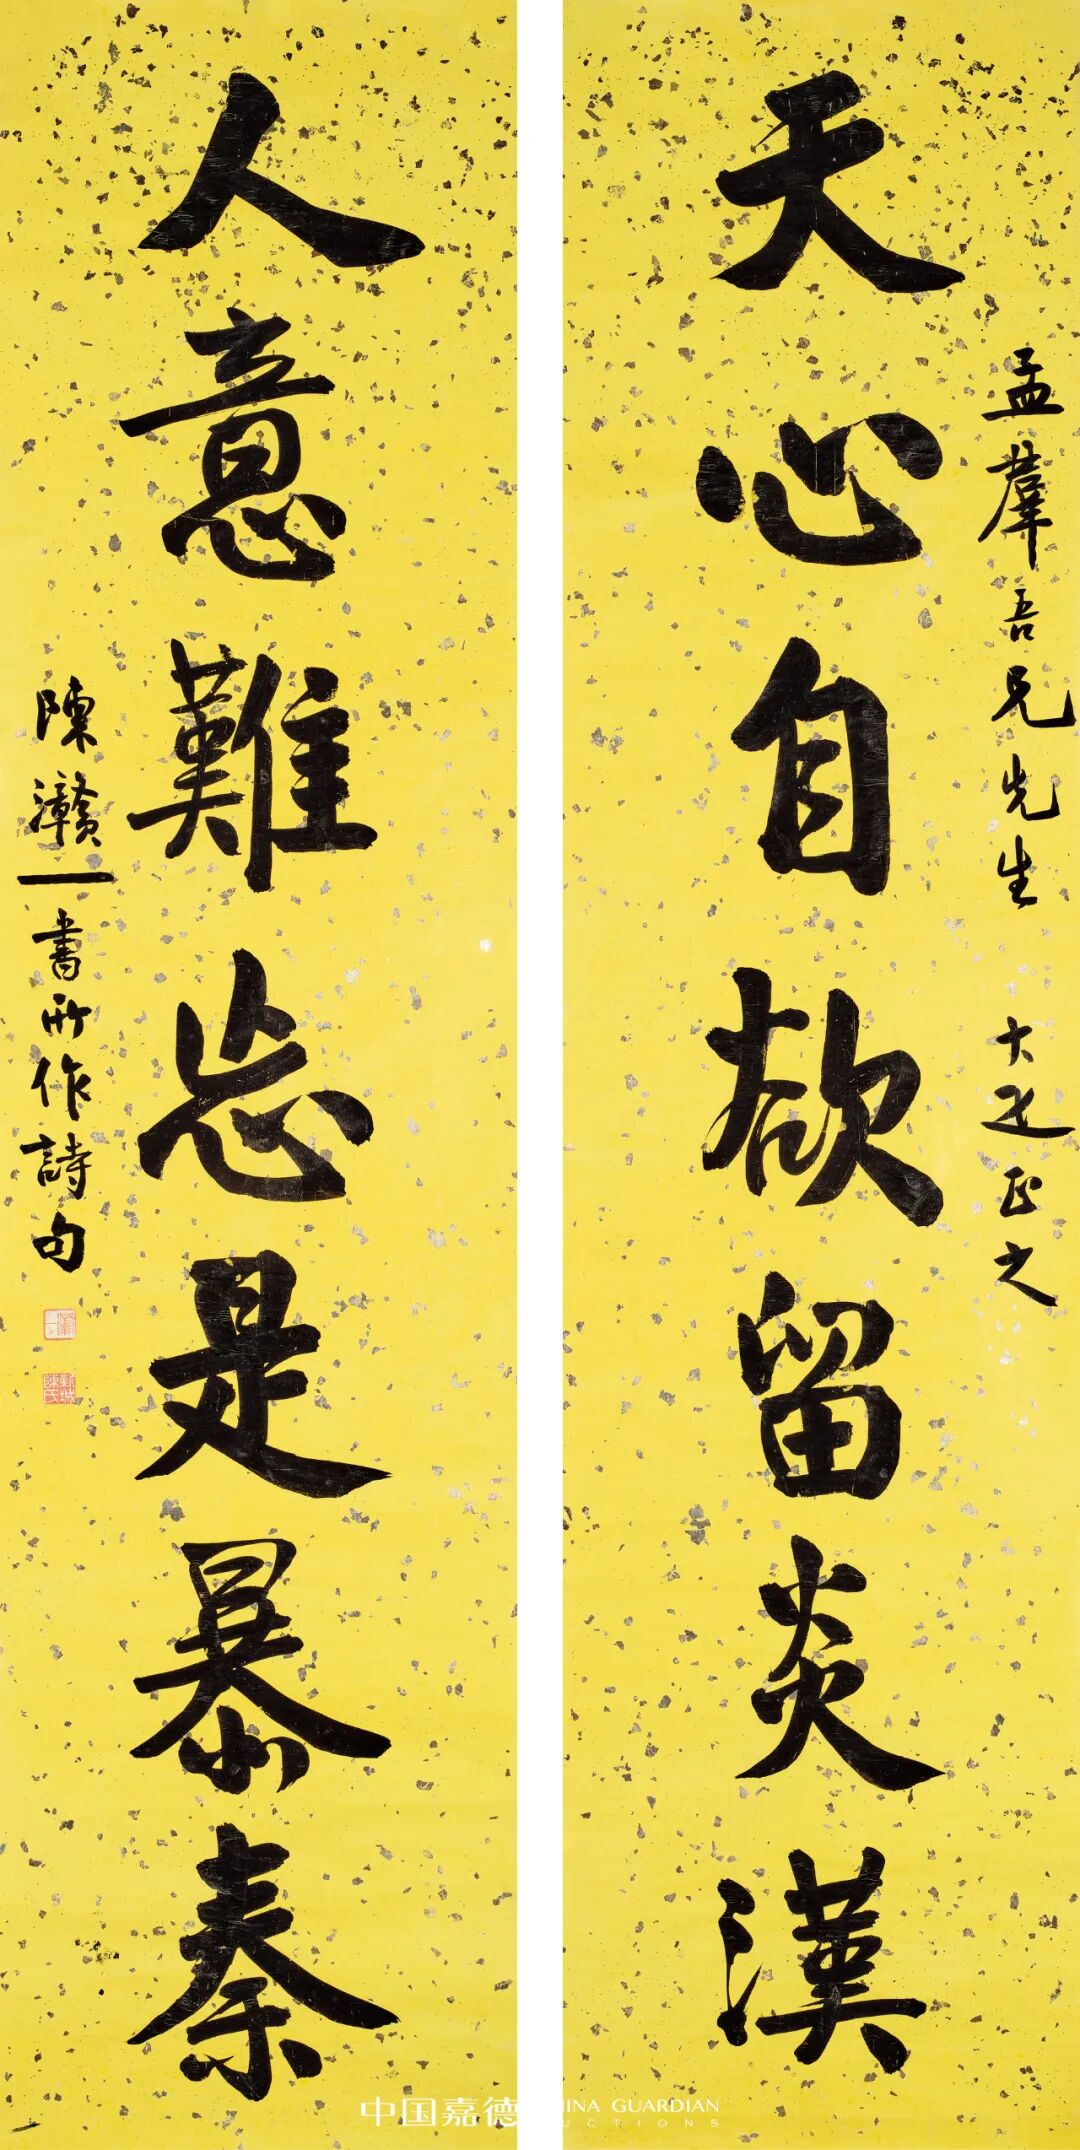 孟羣吾兄先生 大疋正之
天心自欲留炎漢
人意難忘是暴秦
陳灨一書所作詩句
新城陳氏
中国嘉德
INA GUARDIAN
UCTIONS